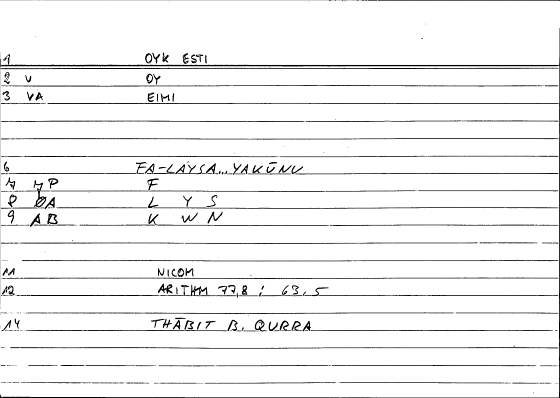 1 OYK ESTI
2 V OY
3 VA EIMI
6 FA-LAYSA...YAKŪNU
7 7P F
8 ØA L Y S
9 AB K W N
11 NICOM
12 ARITHM 77,8 ; 63,5
14 THĀBIT B. QURRA